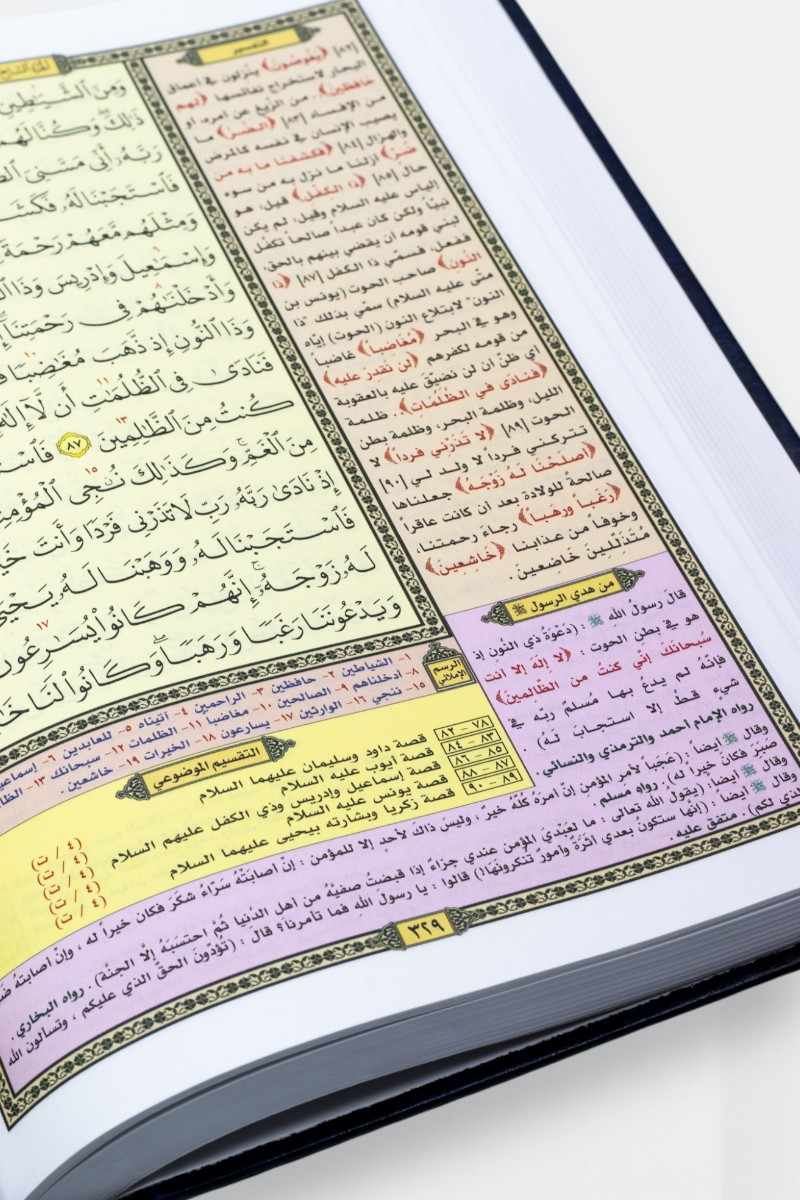 الجزء السابع
وَمِنَ ٱلشَّيَٰطِينِ
ذَٰلِكَ وَكُنَّا لَهُمْ
رَبَّهُۥٓ أَنِّى مَسَّنِىَ
فَٱسْتَجَبْنَا لَهُۥ فَكَشَفْنَا
وَمِثْلَهُم مَّعَهُمْ رَحْمَةً
وَإِسْمَٰعِيلَ وَإِدْرِيسَ وَذَا
وَأَدْخَلْنَٰهُمْ فِى رَحْمَتِنَآ
وَذَا ٱلنُّونِ إِذ ذَّهَبَ مُغَٰضِبًا
فَنَادَىٰ فِى ٱلظُّلُمَٰتِ أَن لَّآ إِلَٰهَ
كُنتُ مِنَ ٱلظَّٰلِمِينَ ٨٧
مِنَ ٱلْغَمِّ وَكَذَٰلِكَ نُۨجِى ٱلْمُؤْمِنِينَ
إِذْ نَادَىٰ رَبَّهُۥ رَبِّ لَا تَذَرْنِى فَرْدًا وَأَنتَ
فَٱسْتَجَبْنَا لَهُۥ وَوَهَبْنَا لَهُۥ يَحْيَىٰ
لَهُۥ زَوْجَهُۥٓ إِنَّهُمْ كَانُوا۟ يُسَٰرِعُونَ
وَيَدْعُونَنَا رَغَبًا وَرَهَبًا وَكَانُوا۟ لَنَا
التفسير
[٨٢] ﴿يَغُوصُونَ﴾ ينزلون في أعماق
البحار لاستخراج نفائسها ﴿لهم
حافظين﴾. من الزيغ عن أمره، أو
من الإفساد [٨٣] ﴿الضُّرّ﴾ ما
يصيب الإنسان في نفسه كالمرض
والهزال [٨٤] ﴿فكشفنا ما به من
ضرّ﴾ أزلنا ما نزل به من سوء
حال [٨٥] ﴿ذا الكفل﴾ قيل: هو
إلياس عليه السلام وقيل: لم يكن
نبيّاً ولكن كان عبداً صالحاً تكفّل
لبني قومه أن يقضي بينهم بالحق،
ففعل، فسمّي ذا الكفل [٨٧] ﴿ذا
النون﴾ صاحب الحوت (يونس بن
متّى عليه السلام) سمّي بذلك "ذا
النون" لابتلاع النون (الحوت) إيّاه
وهو في البحر ﴿مُغاضباً﴾ غاضباً
من قومه لكفرهم ﴿لن نقدرَ عليه﴾
أي ظنّ أن لن نضيّق عليه بالعقوبة
﴿فنادى في الظّلمات﴾. ظلمة
الليل، وظلمة البحر، وظلمة بطن
الحوت [٨٩] ﴿لا تذَرْني فرداً﴾ لا
تتركني فرداً لا ولد لي [٩٠]
﴿أصلحْنا لهُ زوْجهُ﴾ جعلناها
صالحةً للولادة بعد أن كانت عاقراً
﴿رغَباً ورهباً﴾ رجاءَ رحمتنا،
وخوفاً من عذابنا ﴿خاشعينَ﴾
مُتذلّلينَ خاضعينَ.
من هدي الرسول ﷺ
قالَ رسولُ الله ﷺ: (دَعْوَةُ ذي النُونِ إذ
هو في بطن الحوت: ﴿لا إلهَ إلا أنت
سُبحانكَ إنّي كنتُ من الظّالمينَ﴾
فإنّهُ لم يدعُ بها مُسلمٌ ربّه في
شيء قطّ إلا استجابَ لَهُ)
رواه الإمام أحمد والترمذي والنسائي.
وقال ﷺ أيضاً: (عَجَباً لأمرِ المؤمن إنّ أمرهُ كُلّهُ خيرٌ، وليسَ ذاكَ لأحدٍ إلا للمؤمن: إنْ أصابَتْهُ سَرّاءُ شكَرَ فكان خيراً له، وإنْ أصابتهُ
صَبَرَ فكان خيراً له). رواه مسلم.
وقال ﷺ أيضاً: (يقولُ الله تعالى: ما لعَبْديَ المؤمن عندي جزاءٌ إذا قبضتُ صفيّهُ من أهل الدّنيا ثُمّ احتسَبَهُ إلاّ الجنّة). رواه البخاري.
وقال ﷺ أيضاً: (إنّها ستكونُ بعدي أثَرَةٌ وأمورٌ تُنكرونَها!) قالوا: يا رسولَ اللهِ فما تأمرنا؟ قال: (تُؤدّونَ الحقّ الذي عليكم، وتسألون الله
لكم). متفق عليه.
الرسم الإملائي
١- الشياطين ٢- حافظين ٣- الراحمين ٤- آتيناه ٥- للعابدين ٦-
٨- أدخلناهم ٩- الصالحين ١٠- مغاضبا ١١- الظلمات ١٢- سبحانك ١٣-
١٥- ننجي ١٦- الوارثين ١٧- يسارعون ١٨- الخيرات ١٩- خاشعين.
التقسيم الموضوعي
٧٨ – ٨٢ قصة داود وسليمان عليهما السلام (٤ / ت)
٨٣ – ٨٤ قصة أيوب عليه السلام (٤ / ت)
٨٥ – ٨٦ قصة إسماعيل وإدريس وذي الكفل عليهم السلام (٤ / ت)
٨٧ – ٨٨ قصة يونس عليه السلام (٤ / ت)
٨٩ – ٩٠ قصة زكريا وبشارته بيحيى عليهما السلام (٤ / ت)
٣٢٩